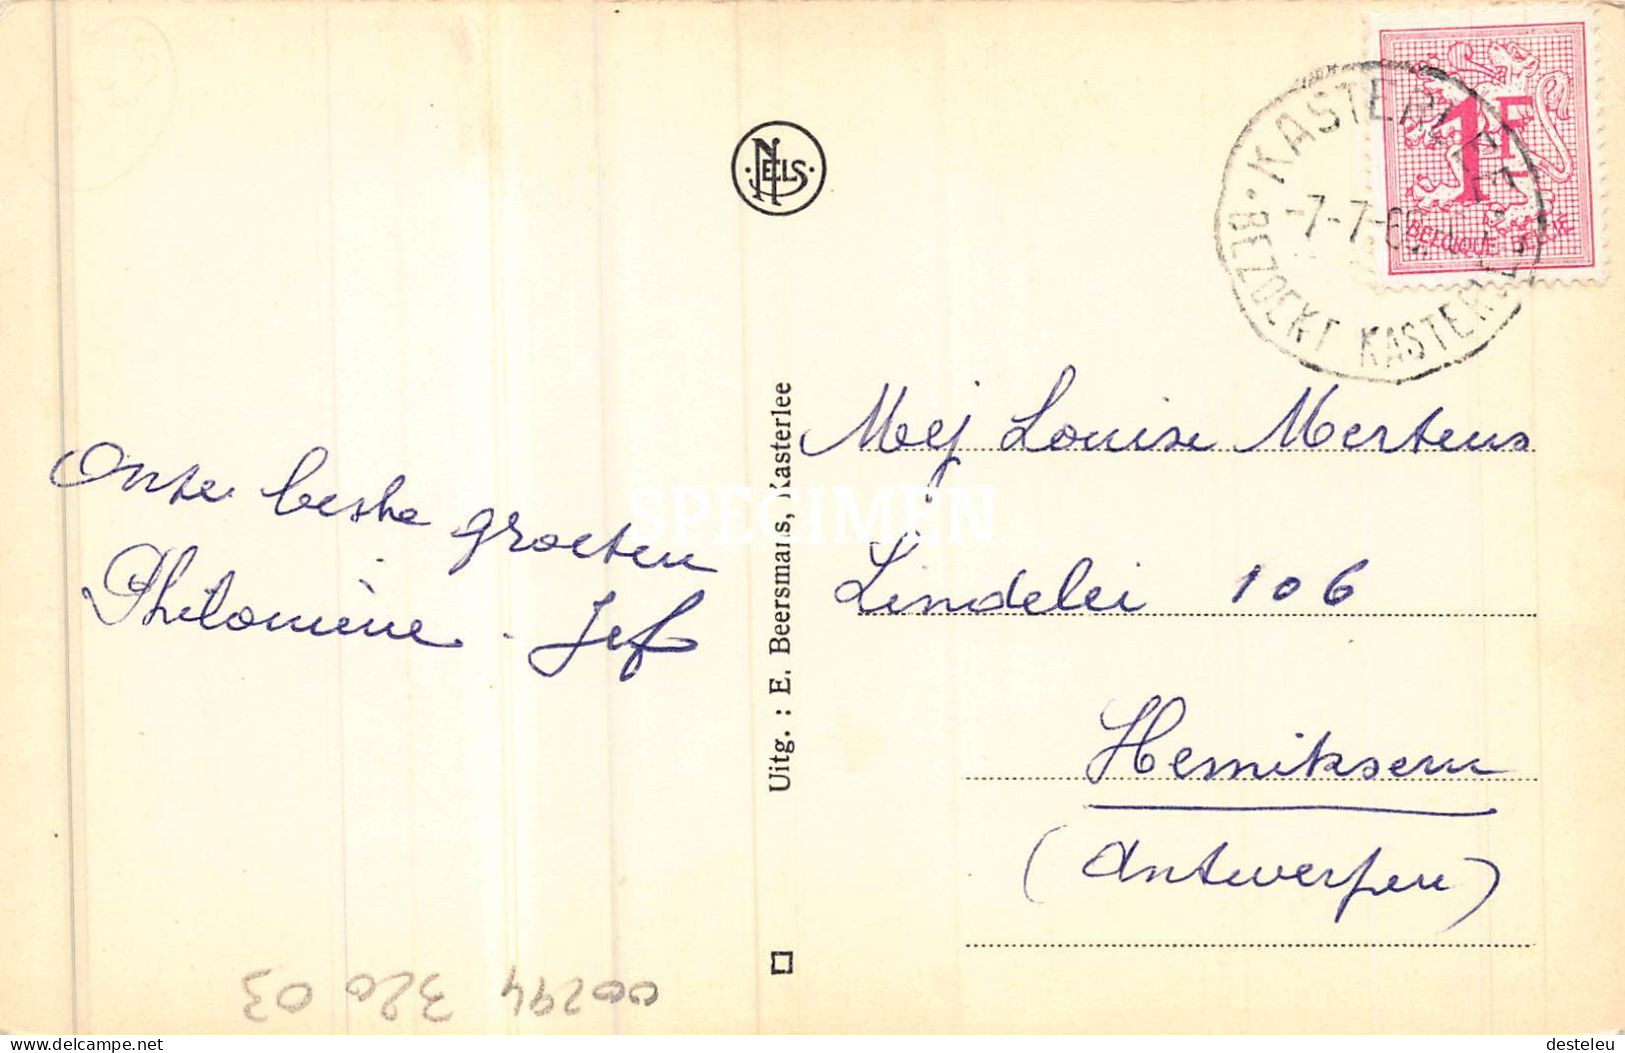 Onze beste groeten
Philomène - Jef
NELS
Uitg. : E. Beersmans, Kasterlee
KASTERLEE
-7-7-6
BEZOEKT KASTERLEE
1F
BELGIQUE BELGIË
Mej Louise Mertens
Lindelei 106
Hemiksem
(Antwerpen)
SPECIMEN
00294 320 03
delcampe.net
desteleu